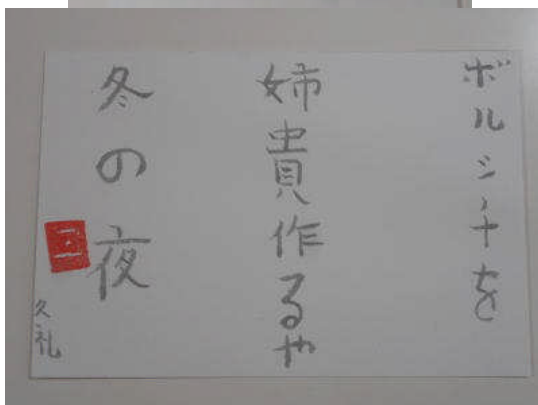 ボルシチを
姉貴作るや
冬の夜
久礼